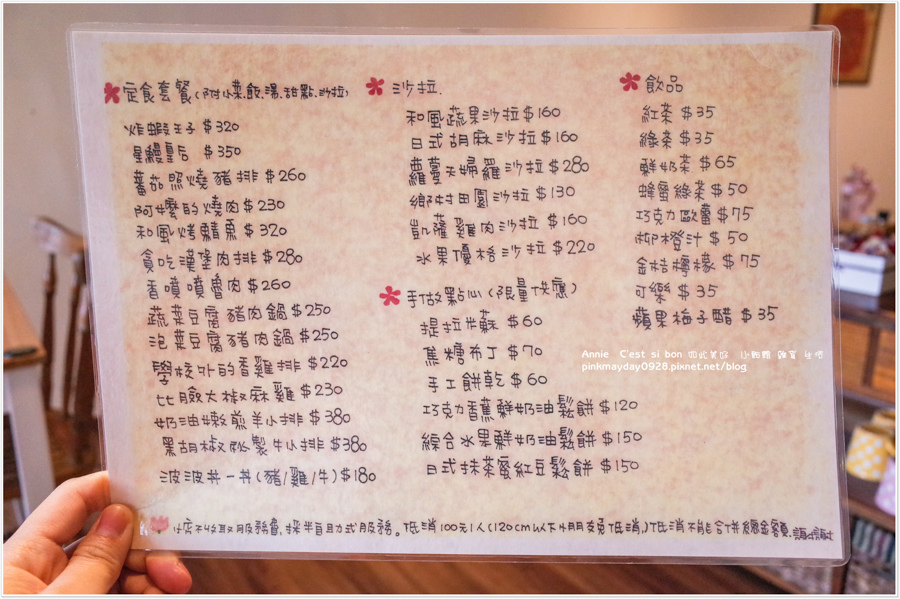 定食套餐(附小菜.飯.湯.甜點.沙拉)
炸蝦王子 $320
星鰻皇后 $350
蕃茄照燒豬排 $260
阿嬤的燒肉 $230
和風烤鯖魚 $320
貪吃漢堡肉排 $280
香噴噴魯肉 $260
蔬菜豆腐豬肉鍋 $250
泡菜豆腐豬肉鍋 $250
學校外的香雞排 $220
比臉大椒麻雞 $230
奶油嫩煎羊小排 $380
黑胡椒秘製牛小排 $380
波波丼一丼(豬/雞/牛) $180
沙拉.
和風蔬果沙拉 $160
日式胡麻沙拉 $160
蘿蔓天婦羅沙拉 $280
鄉村田園沙拉 $130
凱薩雞肉沙拉 $160
水果優格沙拉 $220
手做點心(限量供應)
提拉米蘇 $60
焦糖布丁 $70
手工餅乾 $60
巧克力香蕉鮮奶油鬆餅 $120
綜合水果鮮奶油鬆餅 $150
日式抹茶蜜紅豆鬆餅 $150
飲品
紅茶 $35
綠茶 $35
鮮奶茶 $65
蜂蜜綠茶 $50
巧克力歐蕾 $75
柳橙汁 $50
金桔檸檬 $75
可樂 $35
蘋果梅子醋 $35
Annie C'est si bon 如此美好
pinkmayday0928.pixnet.net/blog
小店不收取服務費,採半自助式服務。低消100元/人(120cm以下小朋友免低消)低消不能合併總金額.謝謝